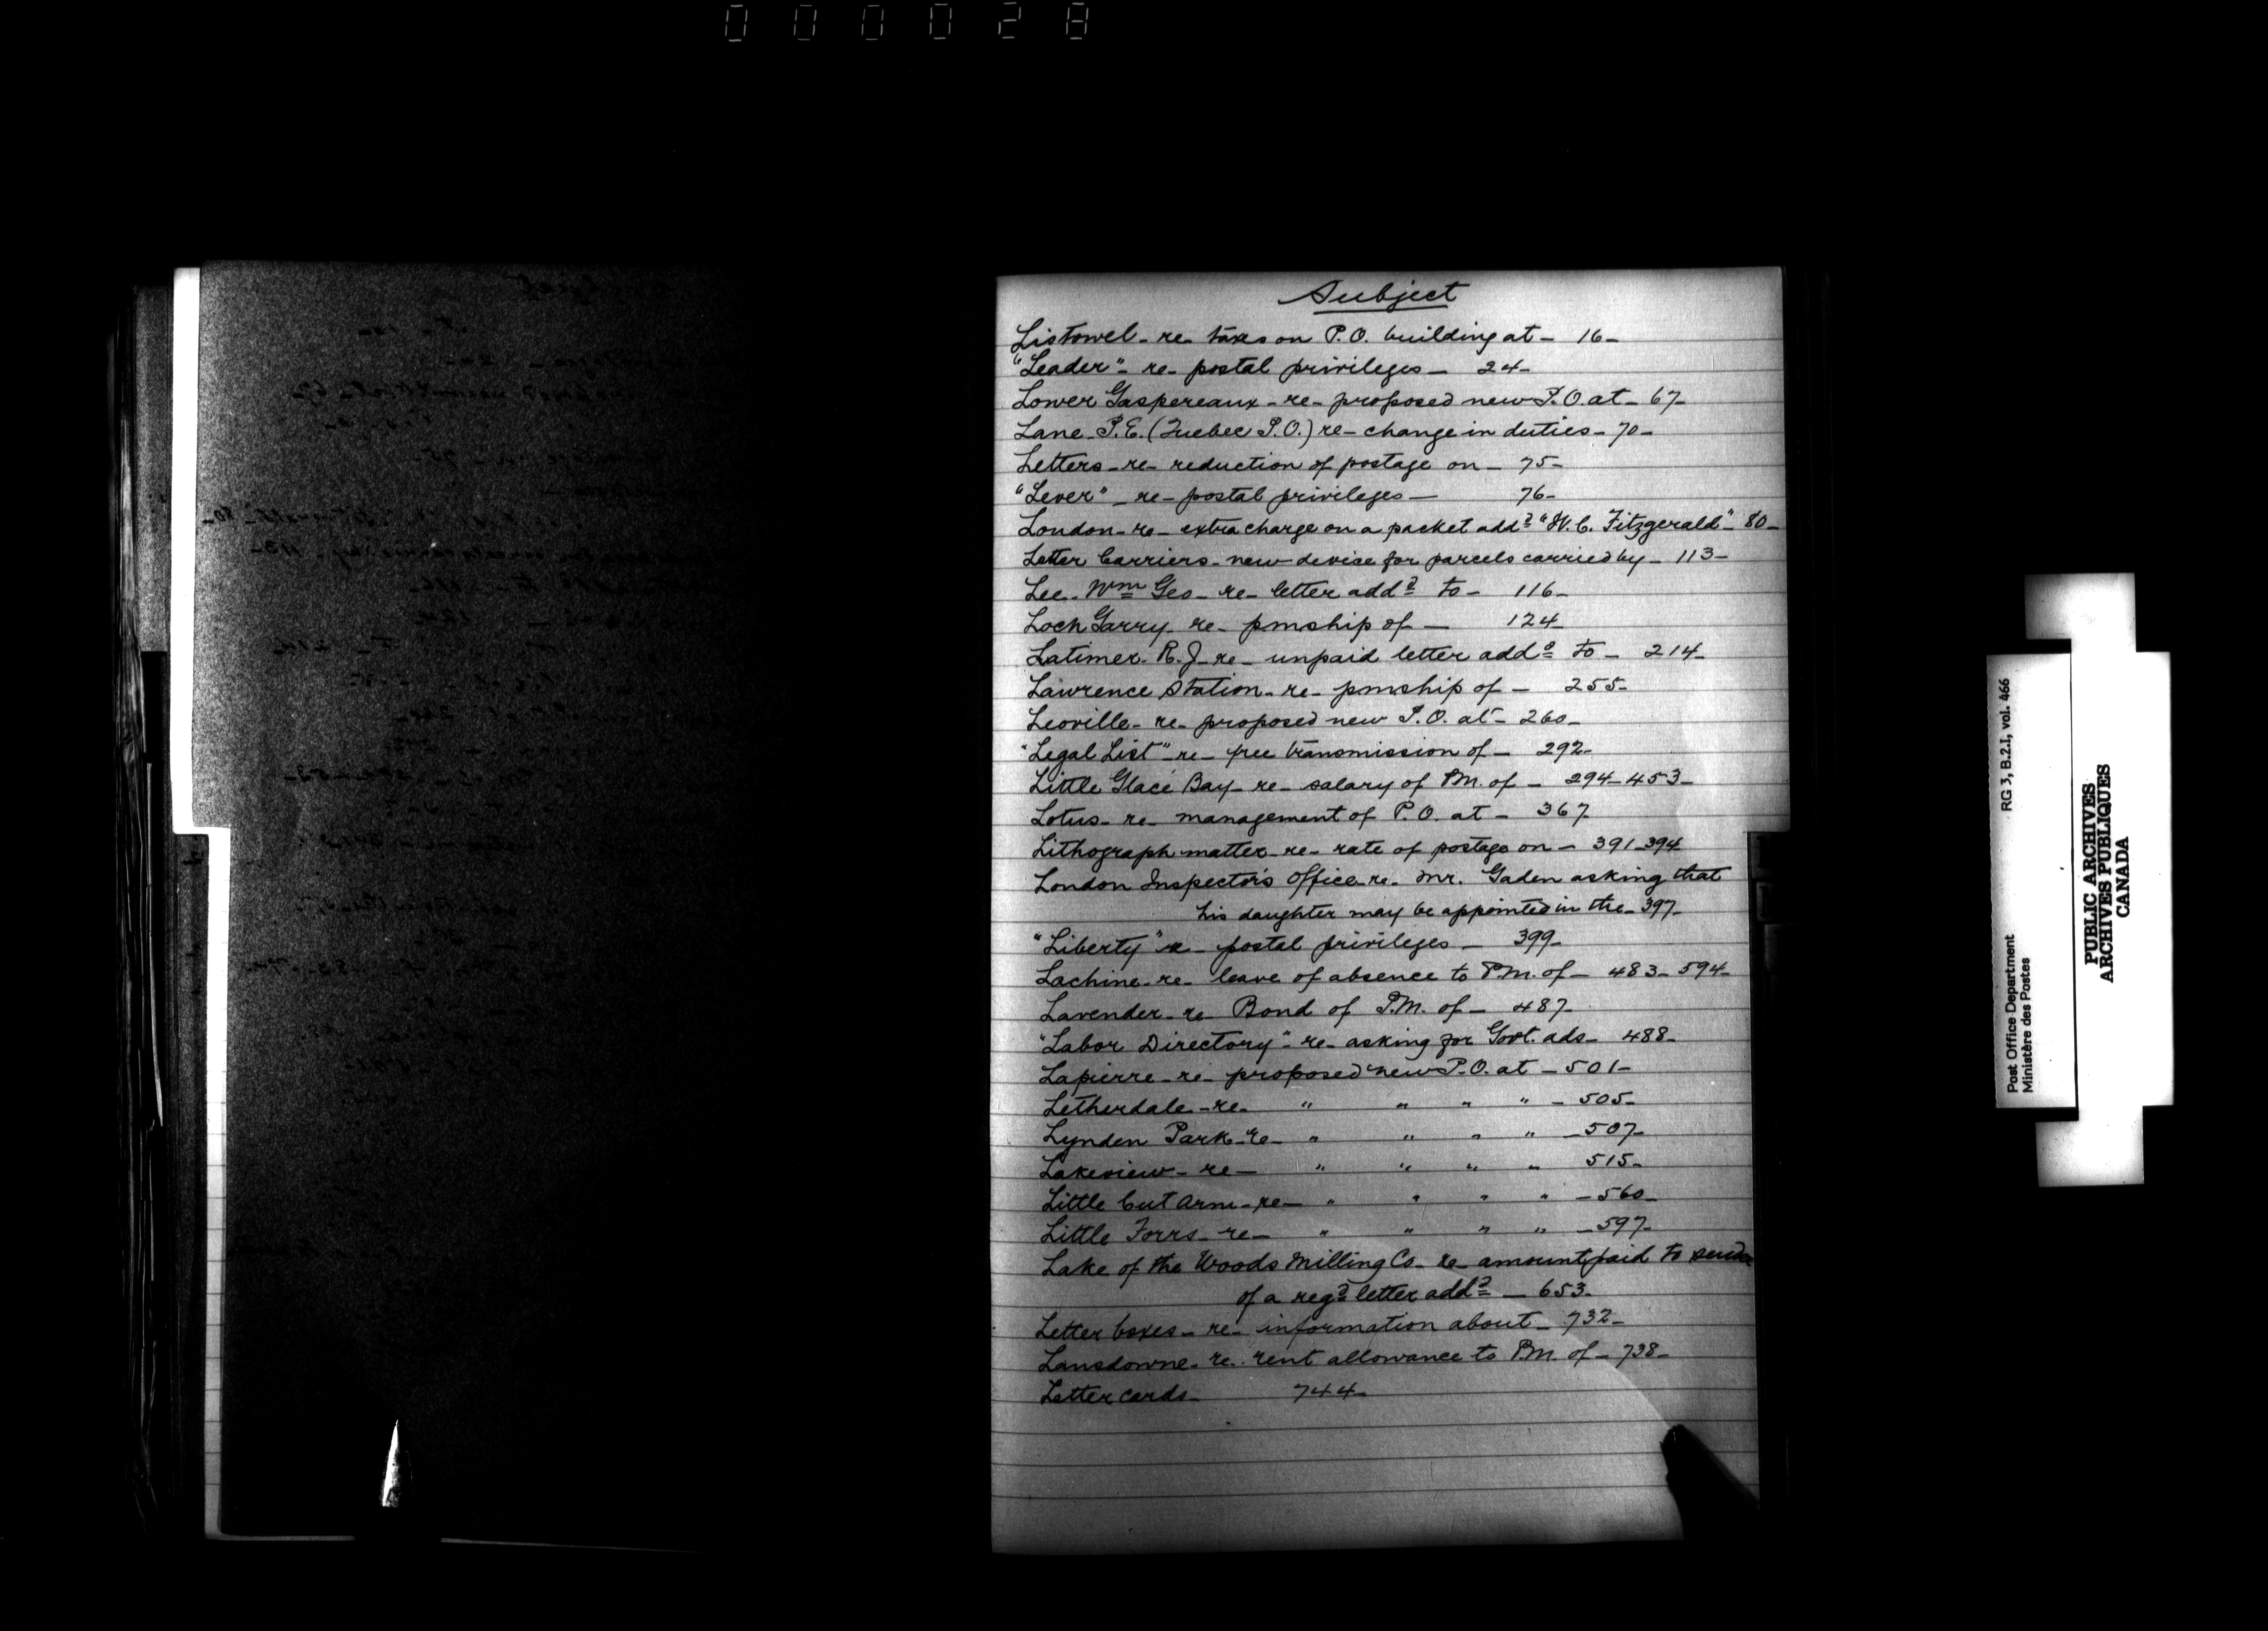 000028
Subject
Listowel - re - taxes on P.O. building at - 16 -
"Leader" - re - postal privileges - 24 -
Lower Gaspereaux - re - proposed new P.O. at - 67 -
Lane - P.E. (Quebec P.O.) re - change in duties - 70 -
Letters - re - reduction of postage on - 75 -
"Lever" - re - postal privileges - 76 -
London - re - extra charge on a packet addd "W.C. Fitzgerald" - 80 -
Letter Carriers - new devise for parcels carried by - 113 -
Lee - Wm Geo - re - letter addd to - 116 -
Loch Garry - re - pmship of - 124
Latimer - R.J. - re - unpaid letter addd to - 214 -
Lawrence Station - re - pmship of - 255 -
Leoville - re - proposed new P.O. at - 260 -
"Legal List" - re - free transmission of - 292 -
Little Glacé Bay - re - salary of P.M. of - 294 - 453 -
Lotus - re - management of P.O. at - 367
Lithograph matter - re - rate of postage on - 391 - 394
London Inspector's Office - re - Mr. Gaden asking that
his daughter may be appointed in the - 397 -
"Liberty" re - postal privileges - 399 -
Lachine - re - leave of absence to P.M. of - 483 - 594 -
Lavender - re - Bond of P.M. of - 487 -
"Labor Directory" - re - asking for Govt. ads - 488 -
Lapierre - re - proposed new P.O. at - 501 -
Letherdale - re - " " " " - 505 -
Lynden Park - re - " " " " - 507 -
Lakeview - re - " " " " 515 -
Little Cut Arm - re - " " " " - 560 -
Little Forks - re - " " " " - 597 -
Lake of the Woods Milling Co - re - amount paid to sender
of a regd letter addd - 653 -
Letter boxes - re - information about - 732 -
Lansdowne - re - rent allowance to P.M. of - 738 -
Letter cards - 744 -
Post Office Department RG 3, B.2.1, vol. 466
Ministère des Postes
PUBLIC ARCHIVES
ARCHIVES PUBLIQUES
CANADA